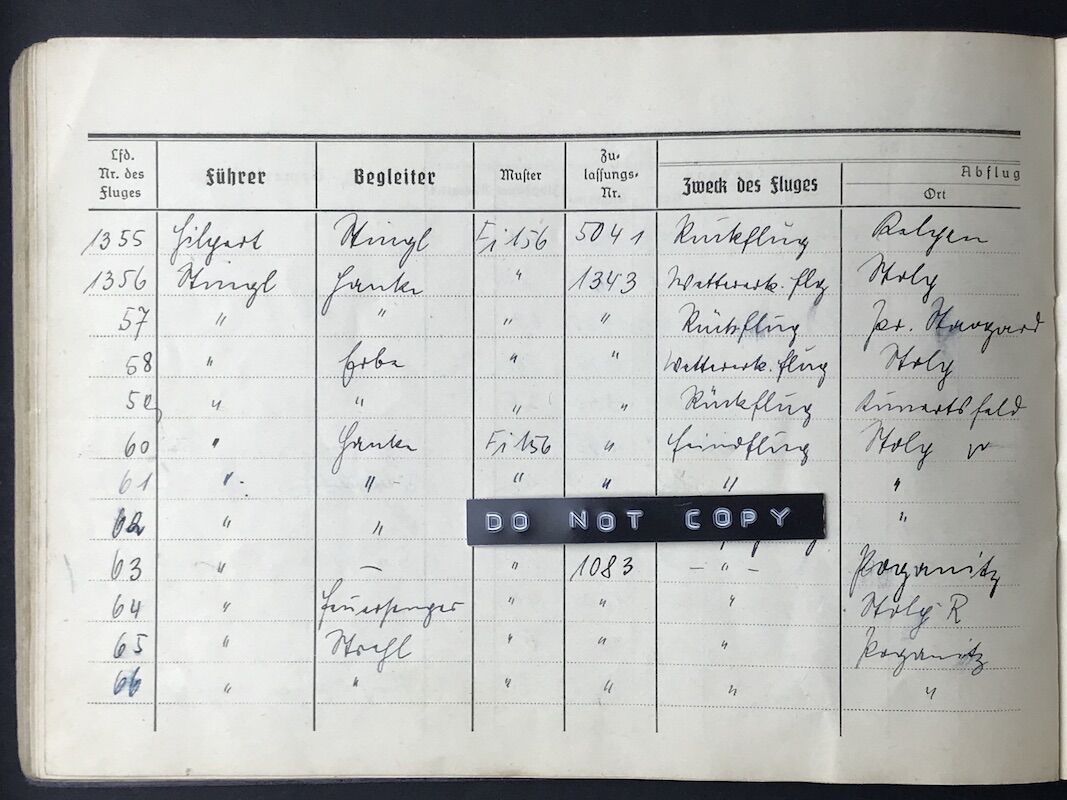 Lfd. Nr. des Fluges Führer Begleiter Muster Zu- lassungs- Nr. Zweck des Fluges Abflug Ort
1355 Hilgert Stingl Fi 156 5041 Rückflug
1356 Stingl Hanke " 1343 Wetterерk. flg Stolp
57 " " " " Rückflug Pr. Stargard
58 " Erbe " " Wettererk. flug Stolp
59 " " " " Rückflug
60 " Hanke Fi 156 " Feindflug Stolp
61 " " " " " "
62 " " "
DO NOT COPY
63 " — " 1083 – " – Poganitz
64 " Feuersenger " " " Stolp R
65 " Strehl " " " Poganitz
66 " " " " " "